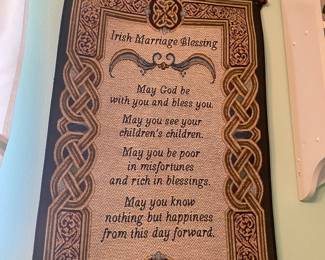 Irish Marriage Blessing
May God be
with you and bless you.
May you see your
children's children.
May you be poor
in misfortunes
and rich in blessings.
May you know
nothing but happiness
from this day forward.